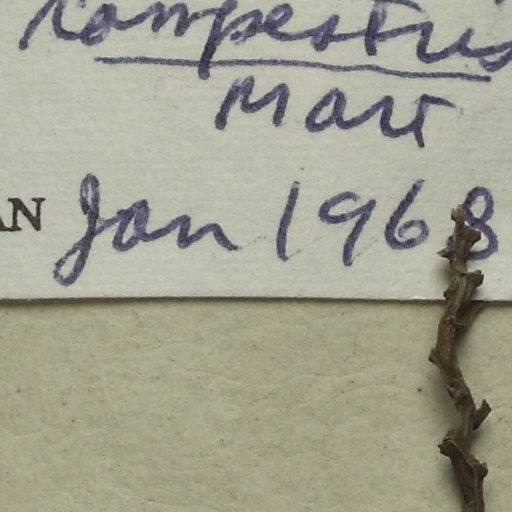 campestris
Mart
AN Jan 1968